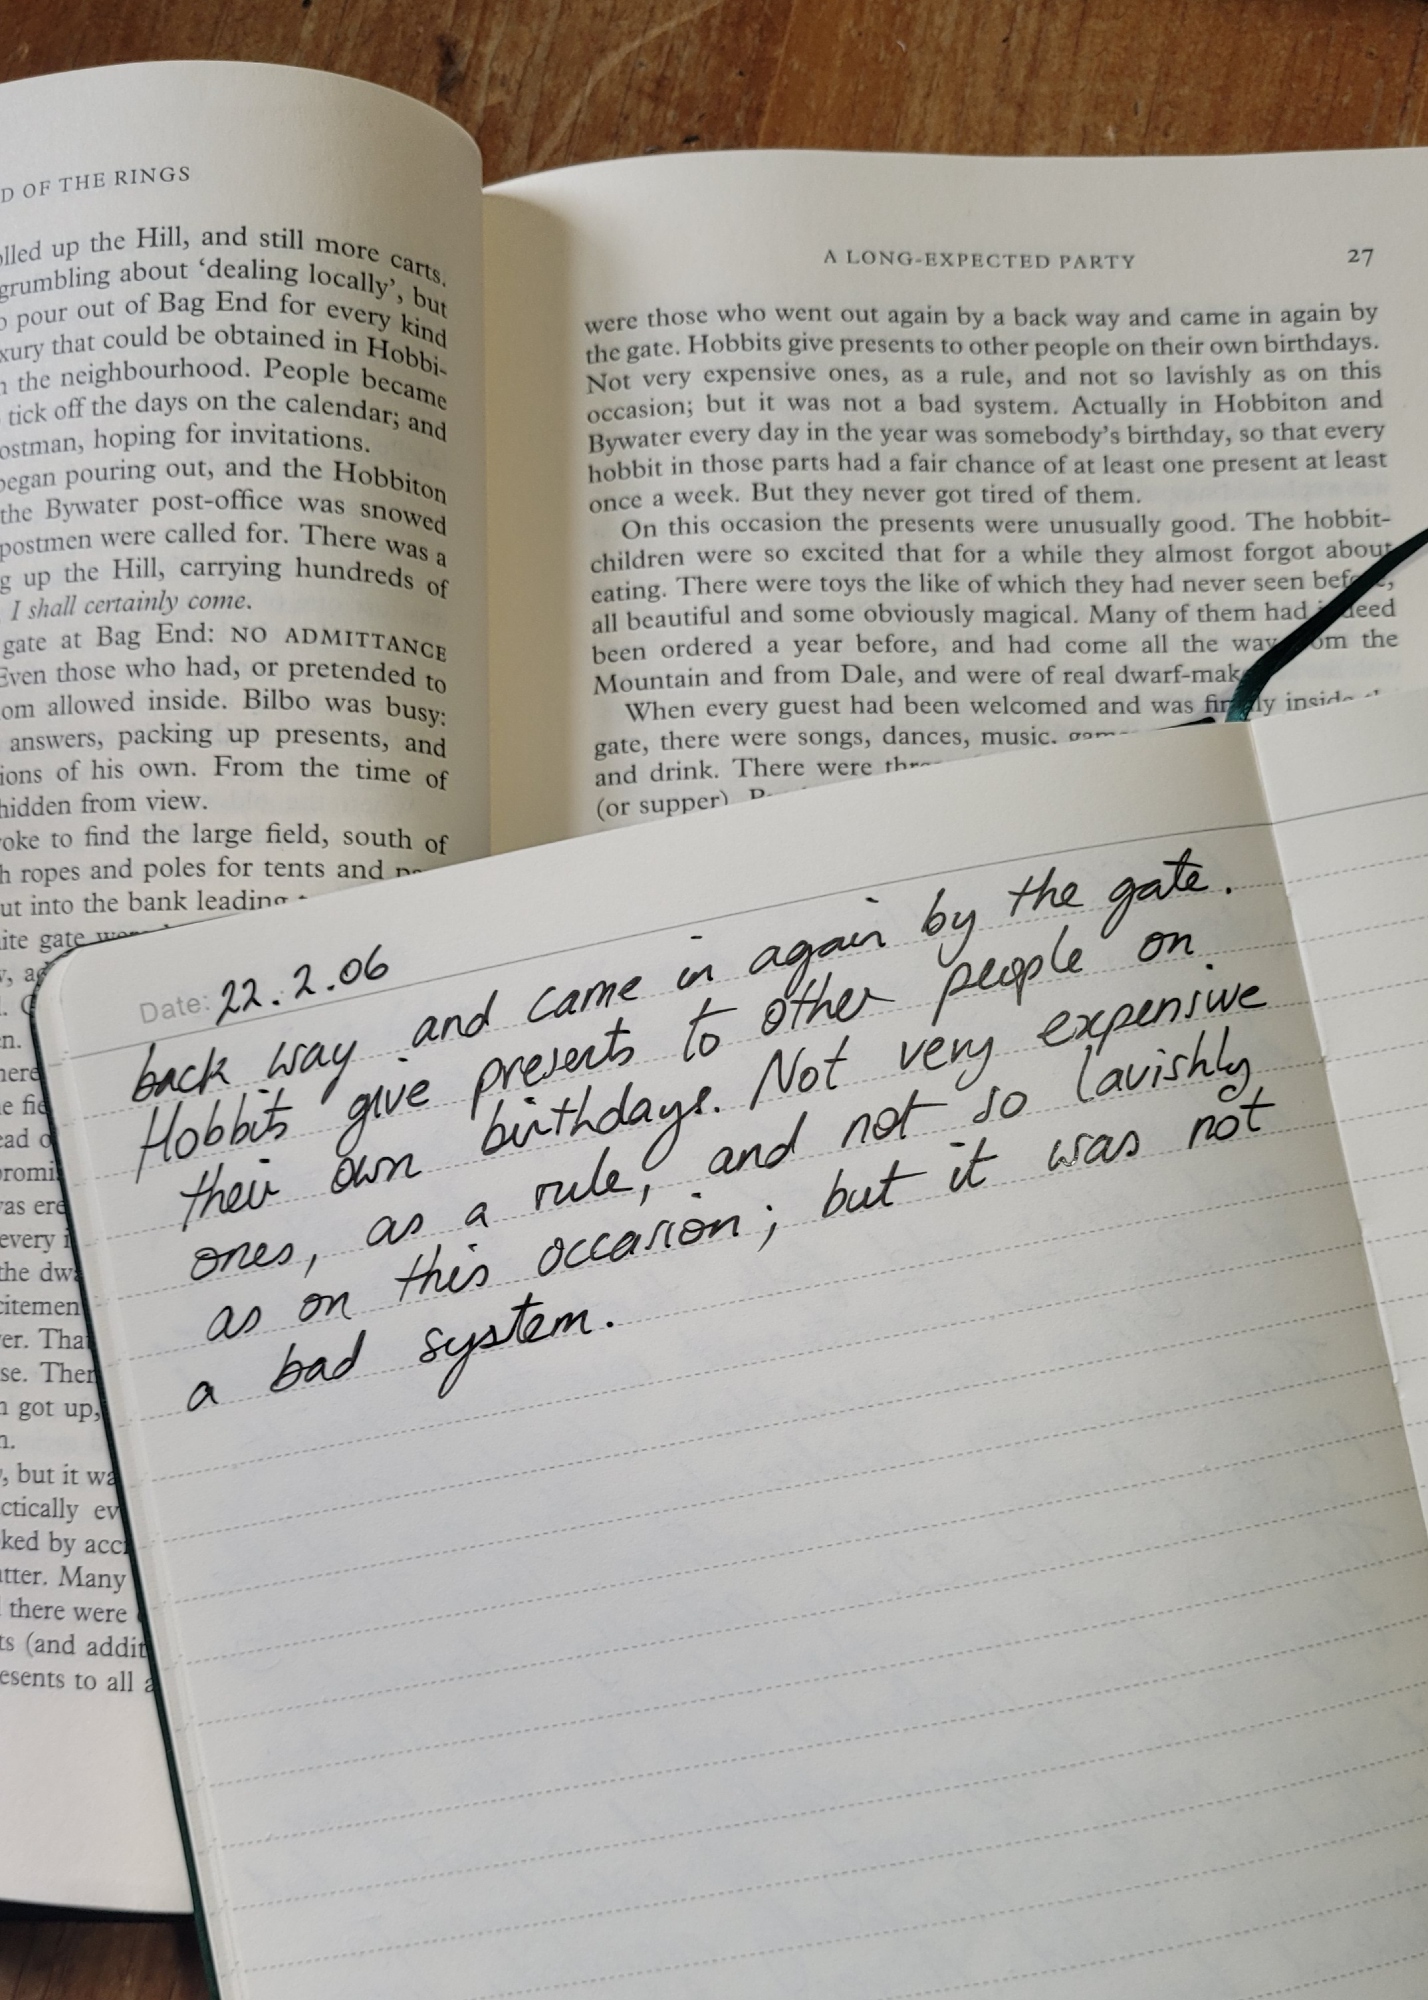 D OF THE RINGS
olled up the Hill, and still more carts.
grumbling about ‘dealing locally’, but
o pour out of Bag End for every kind
xury that could be obtained in Hobbi-
n the neighbourhood. People became
tick off the days on the calendar; and
ostman, hoping for invitations.
began pouring out, and the Hobbiton
the Bywater post-office was snowed
postmen were called for. There was a
g up the Hill, carrying hundreds of
I shall certainly come.
gate at Bag End: NO ADMITTANCE
Even those who had, or pretended to
om allowed inside. Bilbo was busy:
answers, packing up presents, and
ions of his own. From the time of
hidden from view.
oke to find the large field, south of
h ropes and poles for tents and
ut into the bank leading
ite gate
n.
here
e fie
ead o
romi
as ere
every
the dwa
citemen
er. That
se. Ther
n got up,
n.
, but it wa
ctically ev
ked by acc
tter. Many
there were
ts (and addit
esents to all a
A LONG-EXPECTED PARTY 27
were those who went out again by a back way and came in again by
the gate. Hobbits give presents to other people on their own birthdays.
Not very expensive ones, as a rule, and not so lavishly as on this
occasion; but it was not a bad system. Actually in Hobbiton and
Bywater every day in the year was somebody’s birthday, so that every
hobbit in those parts had a fair chance of at least one present at least
once a week. But they never got tired of them.
On this occasion the presents were unusually good. The hobbit-
children were so excited that for a while they almost forgot about
eating. There were toys the like of which they had never seen before,
all beautiful and some obviously magical. Many of them had indeed
been ordered a year before, and had come all the way from the
Mountain and from Dale, and were of real dwarf-mak
When every guest had been welcomed and was finally inside
gate, there were songs, dances, music,
and drink. There were
(or supper)
Date: 22.2.06
back way and came in again by the gate.
Hobbits give presents to other people on
their own birthdays. Not very expensive
ones, as a rule, and not so lavishly
as on this occasion; but it was not
a bad system.